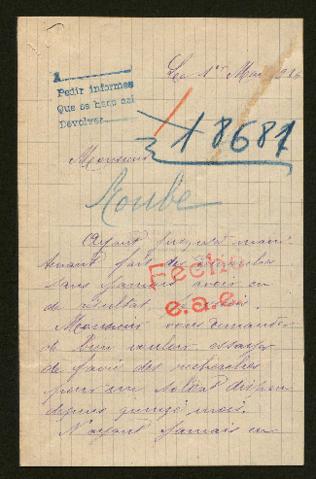 Le 1er Mai 1916
A
Pedir informes
Que se hace así
Devolver
18681
Monsieur
Roube
Ayant jusqu'à main
tenant fait des démarches
sans jamais avoir eu
de résultat
Fecho
e.a.e.
Monsieur vous demander
de bien vouloir essayer
de faire des recherches
pour un soldat disparu
depuis quinze mois.
N'ayant jamais eu